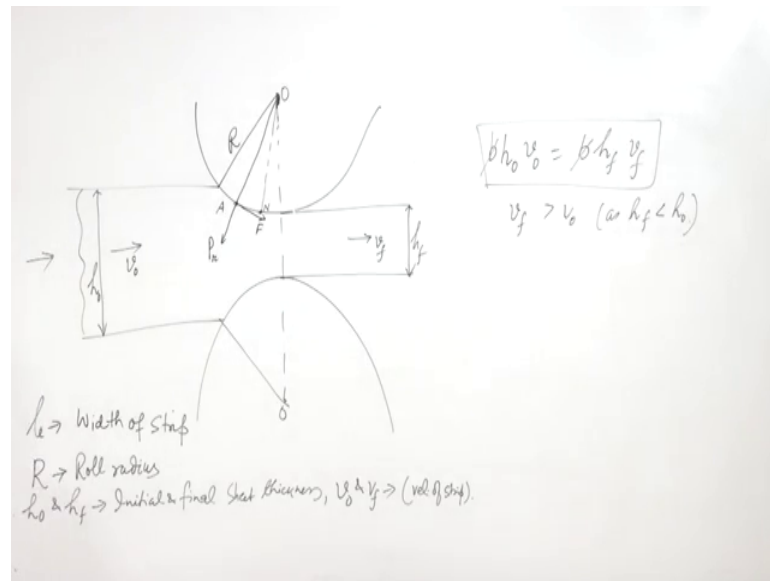 O
R
A
N
F
Pr
h0
v0
vf
hf
O
bh0 v0 = bhf vf
vf > v0 (as hf < h0)
b → Width of strip
R → Roll radius
h0 & hf → Initial & final sheet thickness, v0 & vf → (vel of strip).